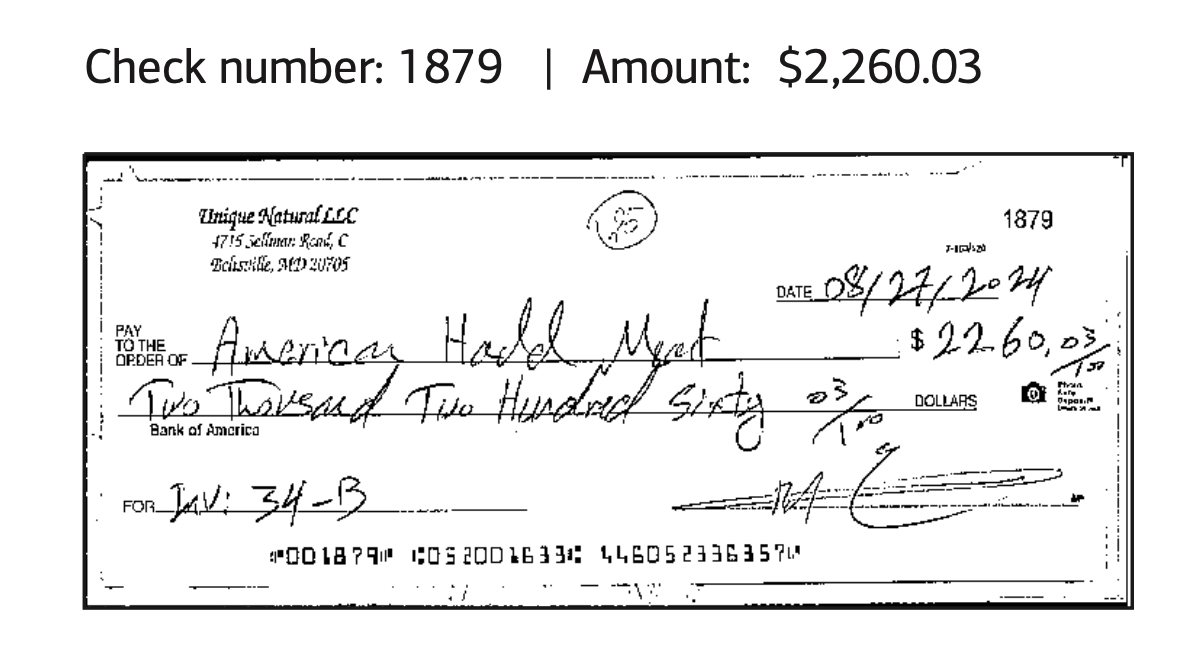 Check number: 1879 | Amount: $2,260.03
Unique Natural LLC
4715 Sellman Road, C
Beltsville, MD 20705
1879
DATE 08/27/2024
PAY
TO THE
ORDER OF American Halal Meat
$ 2260.03/100
Two Thousand Two Hundred Sixty 03/100 DOLLARS
Bank of America
FOR Inv: 34-B
⑈001879⑈ ⑆052001633⑆ 446052336357⑈